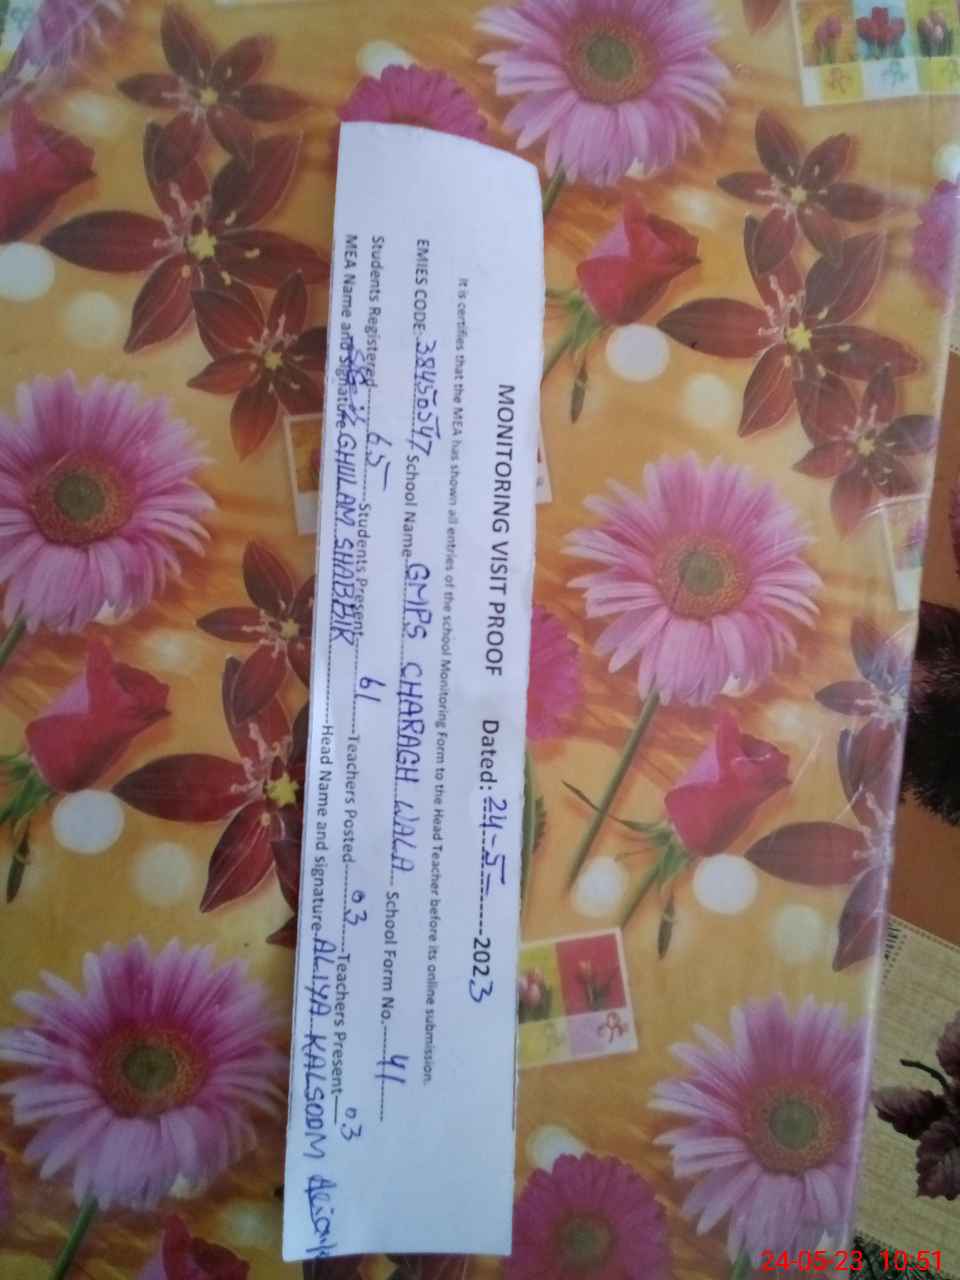 MONITORING VISIT PROOF Dated: 24-5-------2023
It is certifies that the MEA has shown all entries of the school Monitoring Form to the Head Teacher before its online submission.
EMIES CODE 38450547 School Name GMPS CHARAGH WALA School Form No. 41
Students Registered 65 Students Present 61 Teachers Posted 03 Teachers Present 03
MEA Name and Signature GHULAM SHABBIR Head Name and signature ALIYA KALSOOM
24-05-23 10:51